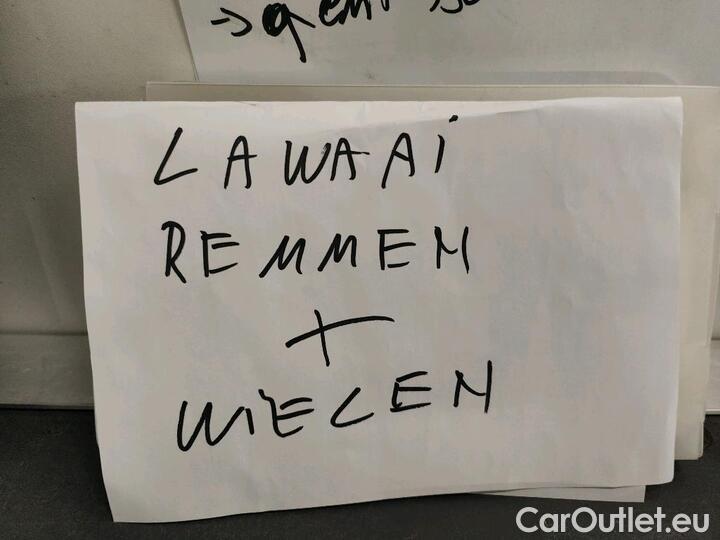 LAWAAi
REMMEN
+
WiELEN
CarOutlet.eu